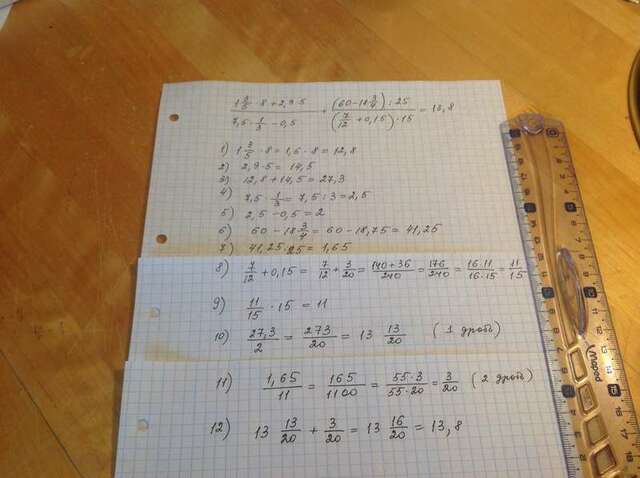 (1 3/5 · 8 + 2,9 · 5)/(7,5 · 1/3 − 0,5) + ((60 − 18 3/4) : 25)/((7/12 + 0,15) · 15) = 13,8
1) 1 3/5 · 8 = 1,6 · 8 = 12,8
2) 2,9 · 5 = 14,5
3) 12,8 + 14,5 = 27,3
4) 7,5 · 1/3 = 7,5 : 3 = 2,5
5) 2,5 − 0,5 = 2
6) 60 − 18 3/4 = 60 − 18,75 = 41,25
7) 41,25 : 25 = 1,65
8) 7/12 + 0,15 = 7/12 + 3/20 = (140 + 36)/240 = 176/240 = (16 · 11)/(16 · 15) = 11/15
9) 11/15 · 15 = 11
10) 27,3/2 = 273/20 = 13 13/20 (1 дробь)
11) 1,65/11 = 165/1100 = (55 · 3)/(55 · 20) = 3/20 (2 дробь)
12) 13 13/20 + 3/20 = 13 16/20 = 13,8
Maped